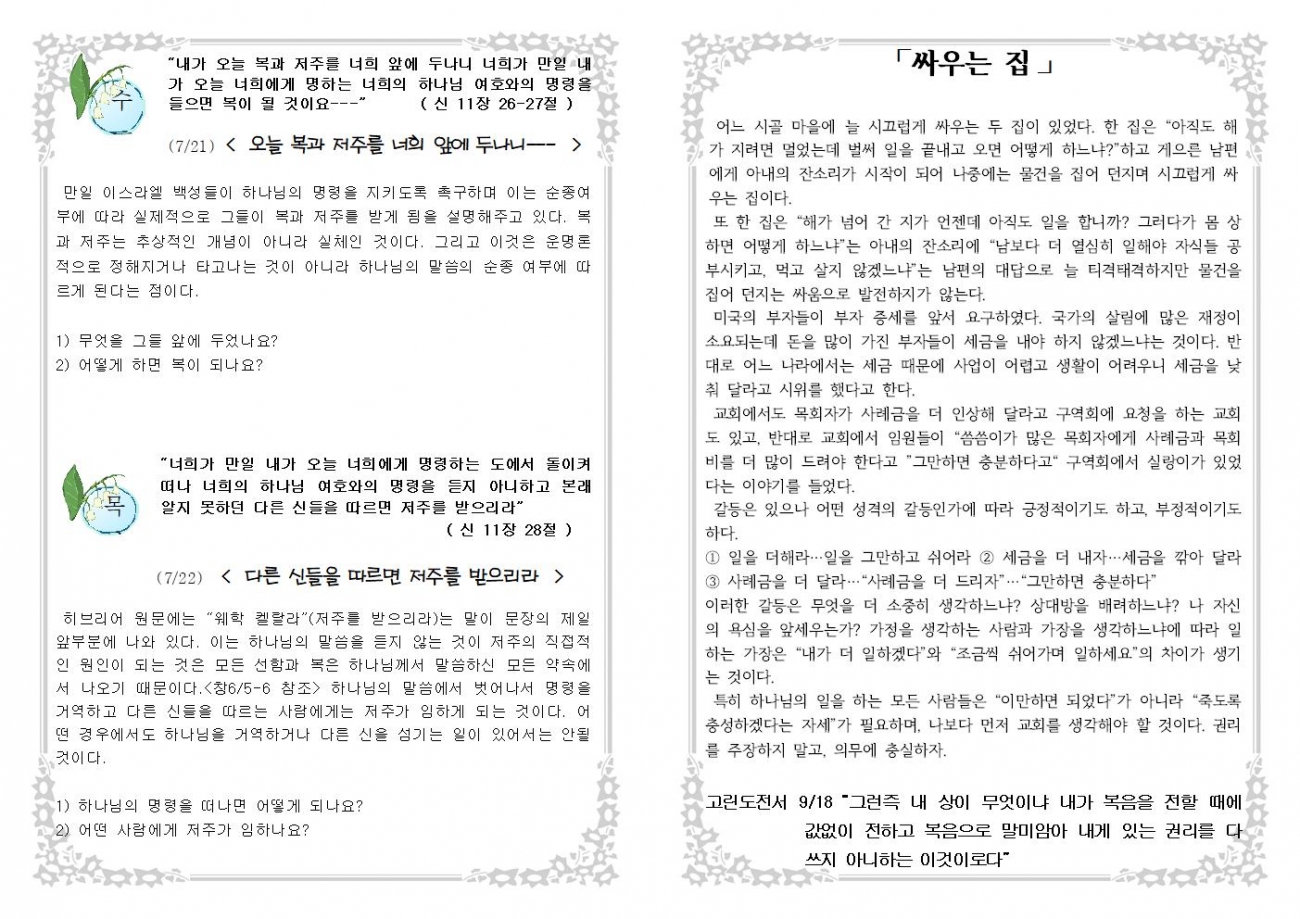 수
"내가 오늘 복과 저주를 너희 앞에 두나니 너희가 만일 내
가 오늘 너희에게 명하는 너희의 하나님 여호와의 명령을
들으면 복이 될 것이요---" ( 신 11장 26-27절 )
(7/21) < 오늘 복과 저주를 너희 앞에 두나니--- >
만일 이스라엘 백성들이 하나님의 명령을 지키도록 촉구하며 이는 순종여
부에 따라 실제적으로 그들이 복과 저주를 받게 됨을 설명해주고 있다. 복
과 저주는 추상적인 개념이 아니라 실체인 것이다. 그리고 이것은 운명론
적으로 정해지거나 타고나는 것이 아니라 하나님의 말씀의 순종 여부에 따
르게 된다는 점이다.
1) 무엇을 그들 앞에 두었나요?
2) 어떻게 하면 복이 되나요?
목
"너희가 만일 내가 오늘 너희에게 명령하는 도에서 돌이켜
떠나 너희의 하나님 여호와의 명령을 듣지 아니하고 본래
알지 못하던 다른 신들을 따르면 저주를 받으리라"
( 신 11장 28절 )
(7/22) < 다른 신들을 따르면 저주를 받으리라 >
히브리어 원문에는 "웨학 켈랄라"(저주를 받으리라)는 말이 문장의 제일
앞부분에 나와 있다. 이는 하나님의 말씀을 듣지 않는 것이 저주의 직접적
인 원인이 되는 것은 모든 선함과 복은 하나님께서 말씀하신 모든 약속에
서 나오기 때문이다.<창6/5-6 참조> 하나님의 말씀에서 벗어나서 명령을
거역하고 다른 신들을 따르는 사람에게는 저주가 임하게 되는 것이다. 어
떤 경우에서도 하나님을 거역하거나 다른 신을 섬기는 일이 있어서는 안될
것이다.
1) 하나님의 명령을 떠나면 어떻게 되나요?
2) 어떤 사람에게 저주가 임하나요?
「싸우는 집」
어느 시골 마을에 늘 시끄럽게 싸우는 두 집이 있었다. 한 집은 "아직도 해
가 지려면 멀었는데 벌써 일을 끝내고 오면 어떻게 하느냐?"하고 게으른 남편
에게 아내의 잔소리가 시작이 되어 나중에는 물건을 집어 던지며 시끄럽게 싸
우는 집이다.
또 한 집은 "해가 넘어 간 지가 언젠데 아직도 일을 합니까? 그러다가 몸 상
하면 어떻게 하느냐"는 아내의 잔소리에 "남보다 더 열심히 일해야 자식들 공
부시키고, 먹고 살지 않겠느냐"는 남편의 대답으로 늘 티격태격하지만 물건을
집어 던지는 싸움으로 발전하지가 않는다.
미국의 부자들이 부자 증세를 앞서 요구하였다. 국가의 살림에 많은 재정이
소요되는데 돈을 많이 가진 부자들이 세금을 내야 하지 않겠느냐는 것이다. 반
대로 어느 나라에서는 세금 때문에 사업이 어렵고 생활이 어려우니 세금을 낮
춰 달라고 시위를 했다고 한다.
교회에서도 목회자가 사례금을 더 인상해 달라고 구역회에 요청을 하는 교회
도 있고, 반대로 교회에서 임원들이 "씀씀이가 많은 목회자에게 사례금과 목회
비를 더 많이 드려야 한다고 "그만하면 충분하다고" 구역회에서 실랑이가 있었
다는 이야기를 들었다.
갈등은 있으나 어떤 성격의 갈등인가에 따라 긍정적이기도 하고, 부정적이기도
하다.
① 일을 더해라…일을 그만하고 쉬어라 ② 세금을 더 내자…세금을 깎아 달라
③ 사례금을 더 달라…"사례금을 더 드리자"…"그만하면 충분하다"
이러한 갈등은 무엇을 더 소중히 생각하느냐? 상대방을 배려하느냐? 나 자신
의 욕심을 앞세우는가? 가정을 생각하는 사람과 가장을 생각하느냐에 따라 일
하는 가장은 "내가 더 일하겠다"와 "조금씩 쉬어가며 일하세요"의 차이가 생기
는 것이다.
특히 하나님의 일을 하는 모든 사람들은 "이만하면 되었다"가 아니라 "죽도록
충성하겠다는 자세"가 필요하며, 나보다 먼저 교회를 생각해야 할 것이다. 권리
를 주장하지 말고, 의무에 충실하자.
고린도전서 9/18 "그런즉 내 상이 무엇이냐 내가 복음을 전할 때에
값없이 전하고 복음으로 말미암아 내게 있는 권리를 다
쓰지 아니하는 이것이로다"